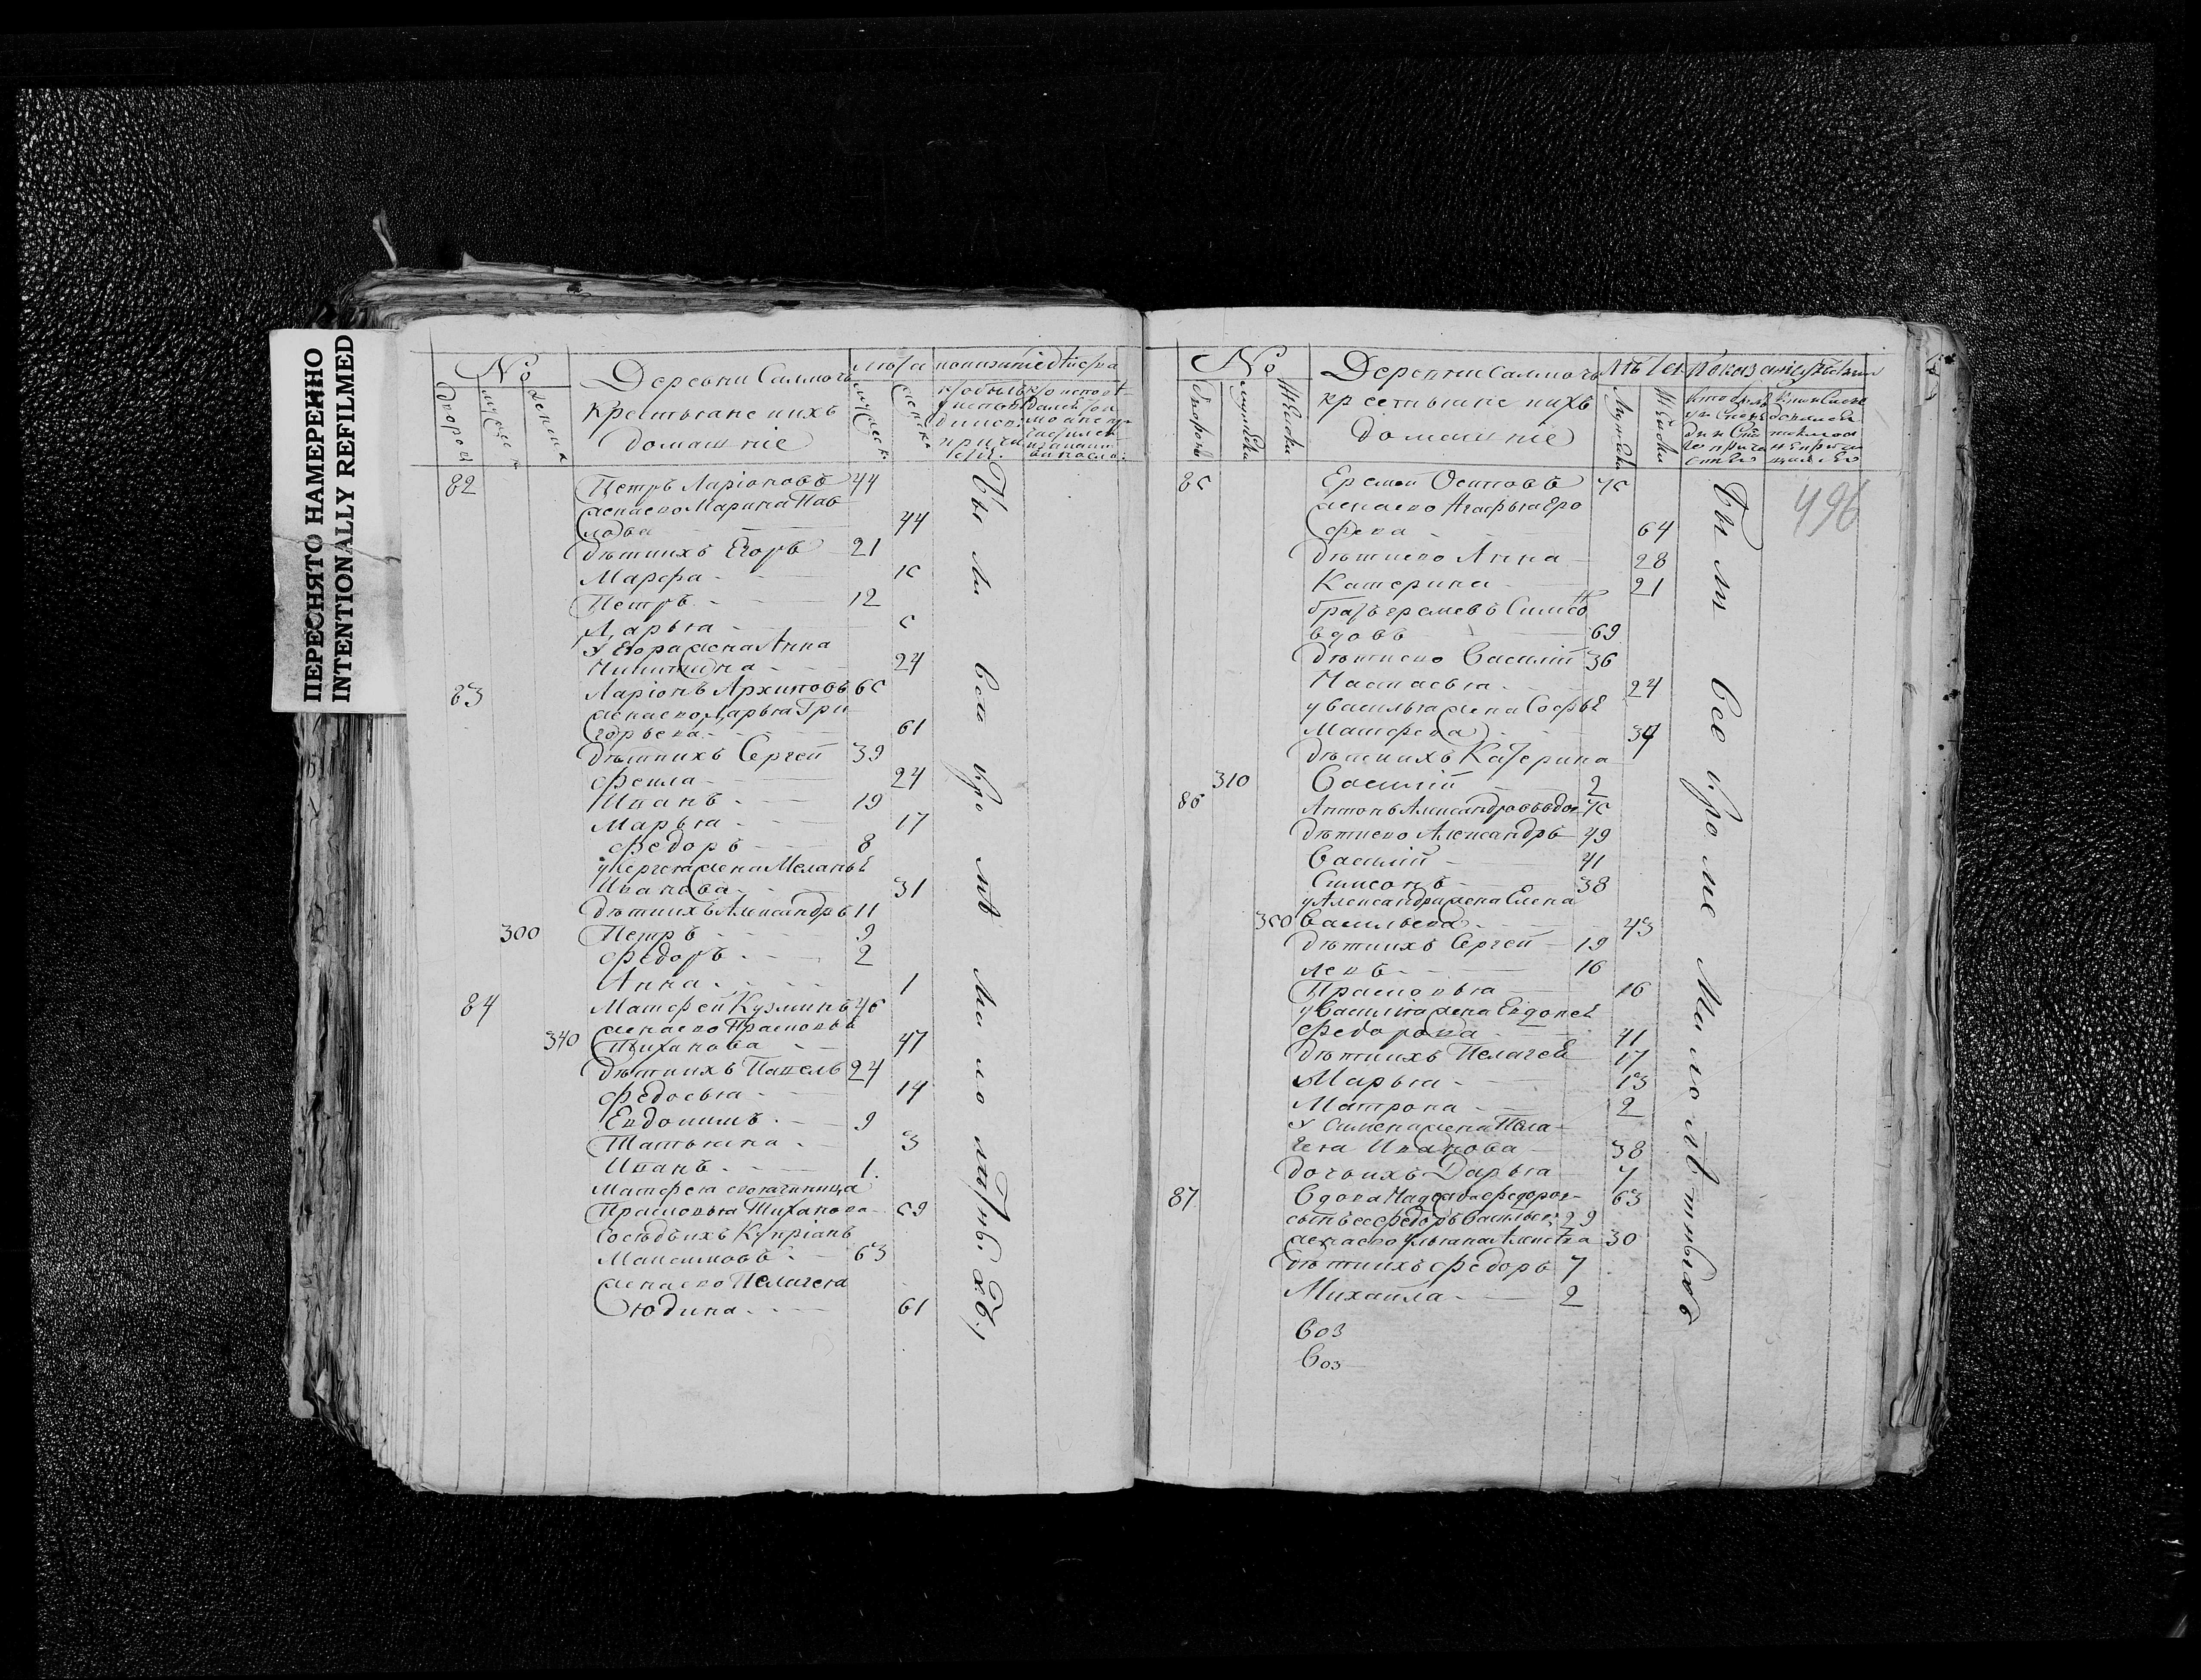 ПЕРЕСНЯТО НАМЕРЕННО
INTENTIONALLY REFILMED
№
Деревни Салмачь
крестьяне и ихъ
домашніе
82 Петръ Ларіоновъ 44
жена ево Марина Пав
лова 44
дѣти ихъ Егоръ 21
Марфа 15
Петръ 12
Дарья 5
у Егора жена Анна
Никитина 24
83 Ларіонъ Архиповъ 65
жена ево Дарья Гри
горьева 61
дѣти ихъ Сергей 39
Фекла 24
Иванъ 19
Марья 17
Федоръ 8
у Сергея жена Меланьѣ
Иванова 31
дѣти ихъ Александръ 11
300 Петръ 9
Федоръ 2
Анна 1
84 Матфей Кузминъ 46
жена ево Прасковья
340 Тиханова 47
дѣти ихъ Павелъ 24
Федосья 14
Евдокимъ 9
Татьяна 3
Иванъ 1.
Матфея своячиница
Прасковья Тиханова 59
Сосѣдъ ихъ Купріанъ
Максимовъ 63
жена ево Пелагея
Юдина 61
Были всѣ кромѣ малолѣтн:хъ
№
Деревни Салмачь
крестьяне и ихъ
домашніе
лѣта
показаніе
496
85 Еремей Осиповъ 75
жена ево Агафья Еро
фева 64
дѣти ево Анна 28
Катерина 21
братъ еремевъ Симео
вдовъ 69
дѣти ево Василій 36
Настасья 24
у василья жена Софьѣ
Матфева 34
дѣти ихъ Катерина 7
310 Василій 2
86 Антонъ Александровъ вдов 75
дѣти ево Александръ 49
Василій 41
Симсонъ 38
у Александра жена Елена
350 Васильева 43
дѣти ихъ Сергей 19
левъ 16
Прасковья 16
у Василія жена Евдокеѣ
Федорова 41
дѣти ихъ Пелагеѣ 17
Марья 13
Матрона 2
у Симсона жена Пела
гея Иванова 38
дочь ихъ Дарья 7
87 Вдова Надежда Федоров 63
сынъ ее Федоръ Васильев 29
жена ево Ульяна Алексѣва 30
дѣти ихъ Федоръ 7
Михаила 2
Воз
Воз
Были все кроме Малолѣтныхъ